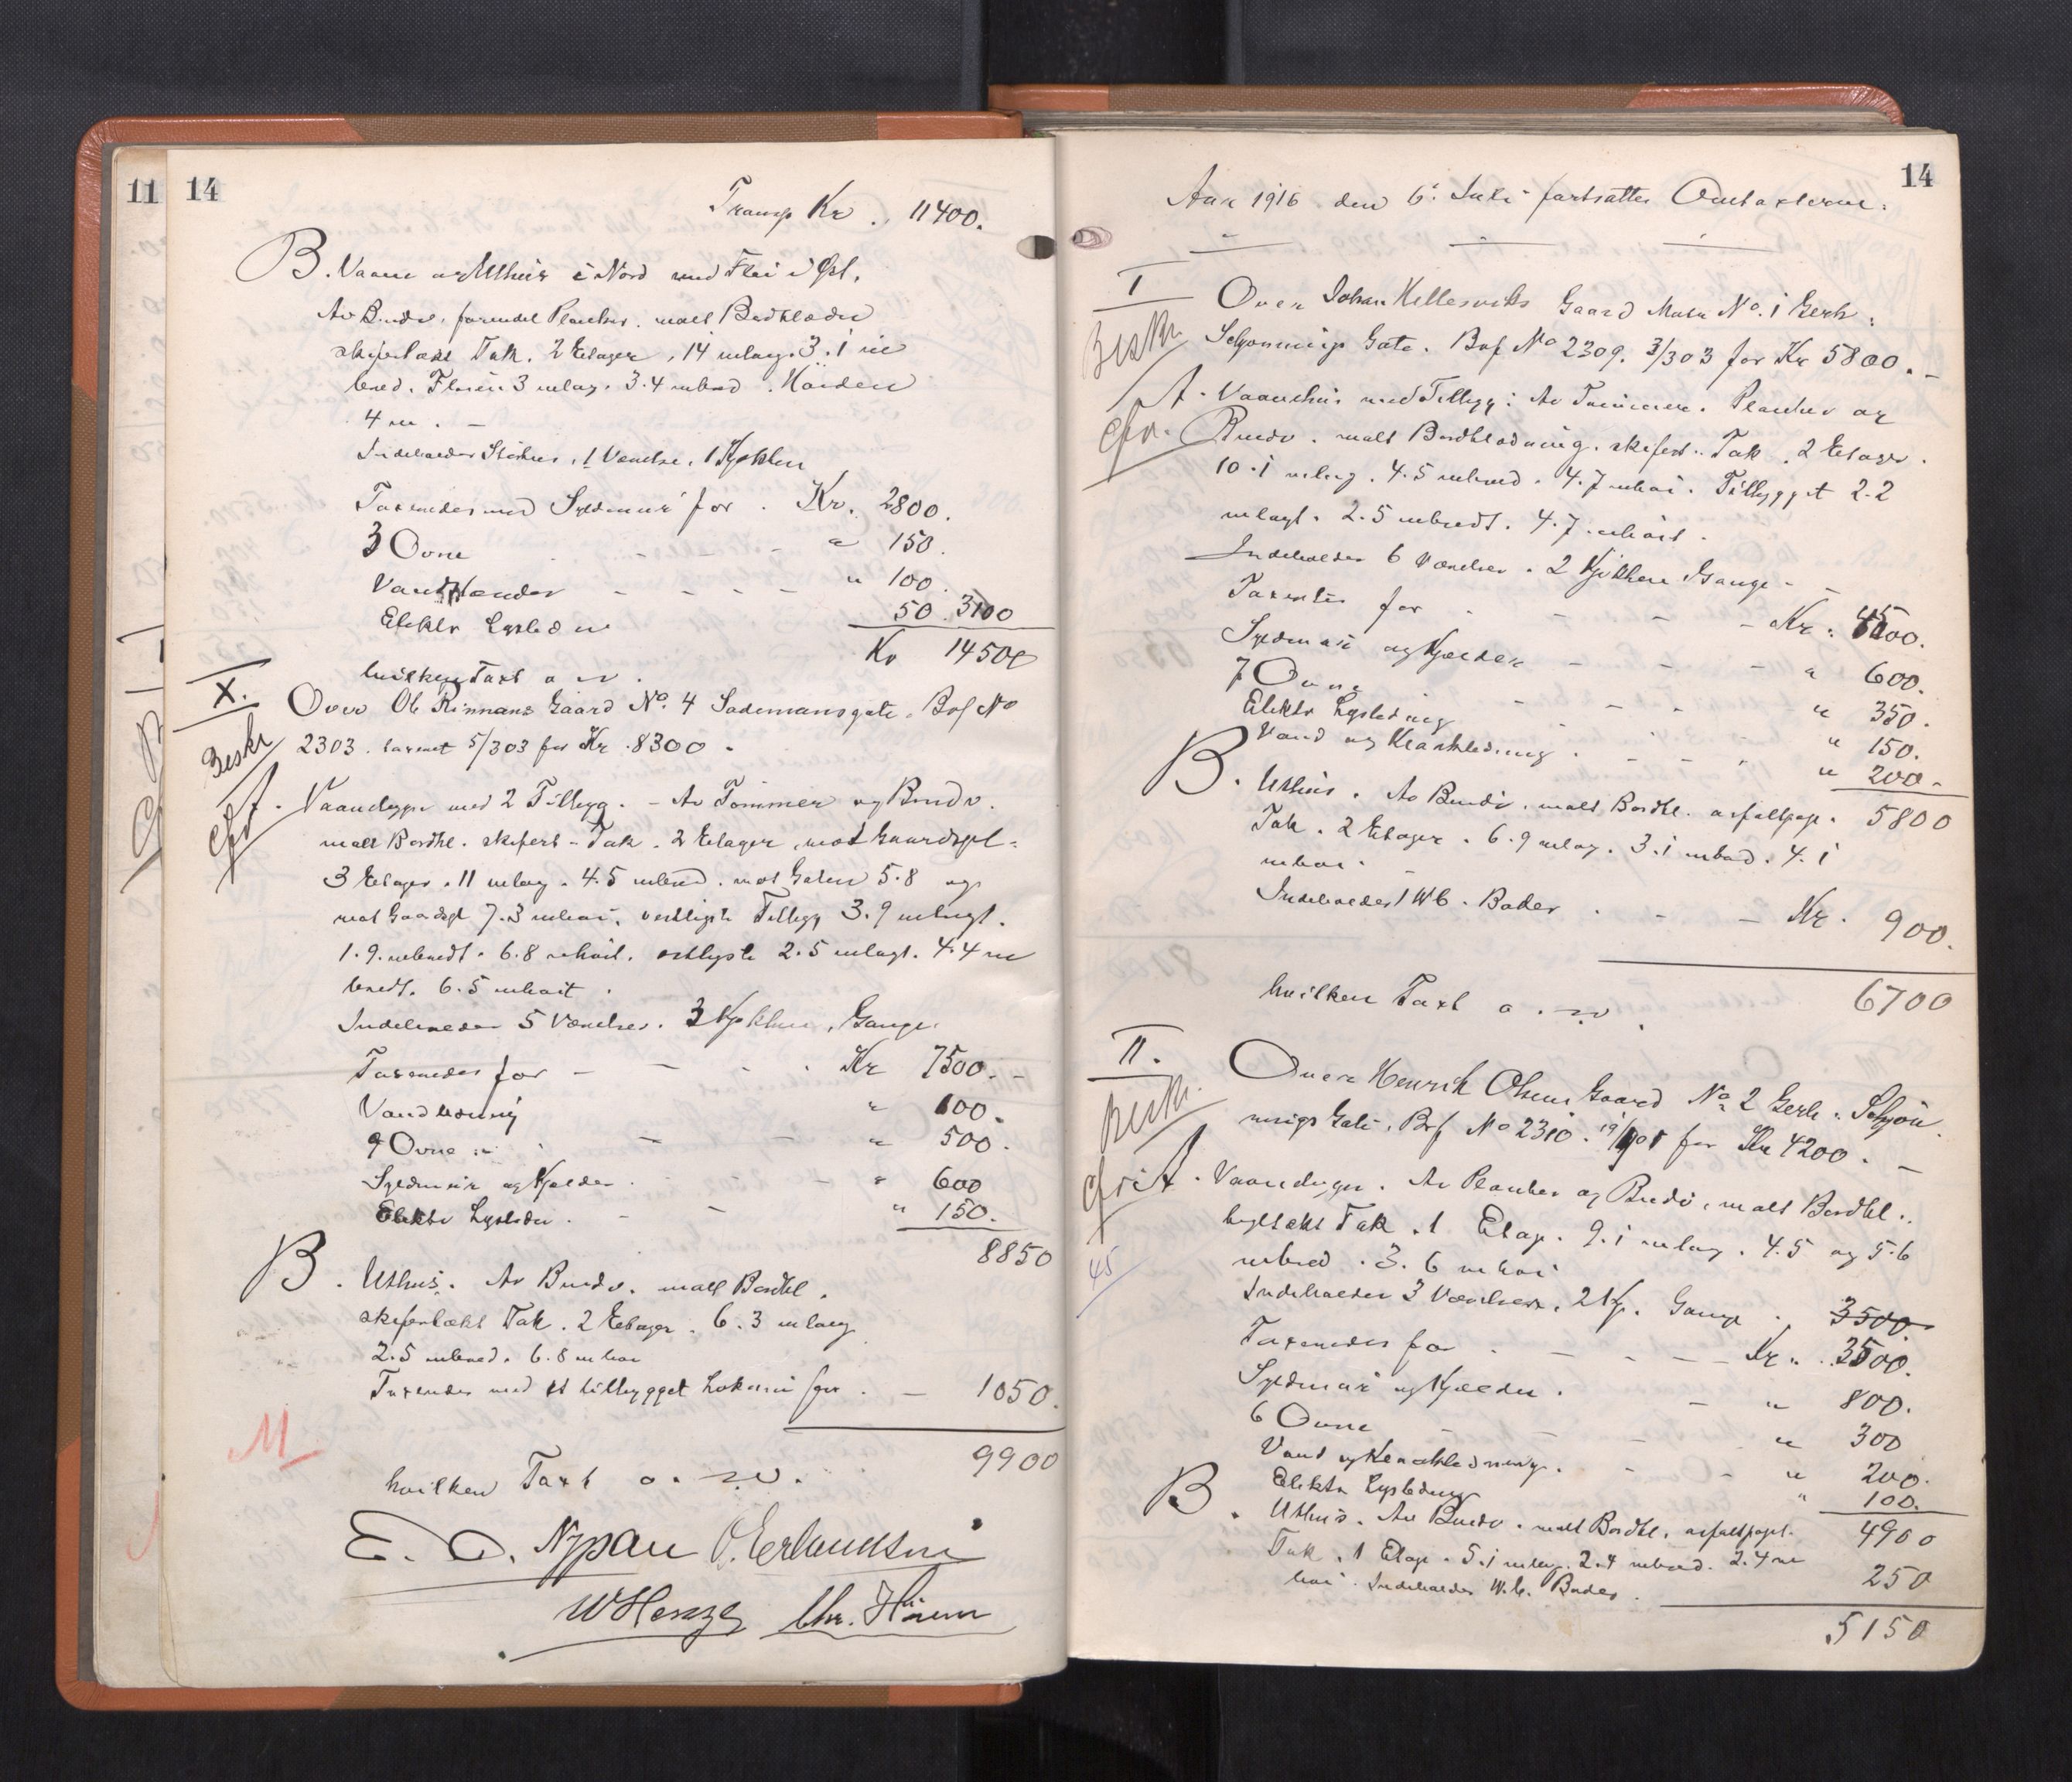 11
14
Transp Kr. 11400.
B. Vaane og Uthus i Nord med Fløi i Øst.
Av Bindv. forendel Planker. malt Bordklædn
skifertækt Tak. 2 Etager, 14 m lang. 3.1 m
bred. Fløien 3 m lag. 3.4 m bred. Høiden
4 m. -
Indeholder Stikhus, 1 Værelse, 1 Kjøkken
Taxeredes med Syldmur for . Kr. 2800.
3 Ovne - - - " 150.
Vand - - - - " 100.
Elektr Lysledn 50. 3100
Kr 14500
hvilken Taxt o s v.
X. Over Ole Rinnans Gaard No. 4 Sademansgate. Bof No
Beskr 2303. taxeret 5/303 for Kr. 8300.-
Cfr A. Vaandhgen med 2 Tilbygg. - Av Tømmer og Bindv.
malt Bordkl. skifert-Tak. 2 Etager, mot Gaardspl-
3 Etager. 11 m lang. 4.5 m bred. mot Gaten 5.8 og
mot Gaardspl 7.3 m høi. vestligste Tilbygg 3.9 m langt.
1.9. m bredt. 6.8 m høit. østligste 2.5 m langt. 4.4 m
bredt. 6.5 m høit.
Indeholder 5 Værelser. 3 Kjøkken, Gange.
Taxeredes for - - - Kr 7500.-
Vandledning " 100.
9 Ovne - - " 500.
Syldmur og Kjælder . - - " 600
Elektr Lysledn. - - " 150.
8850
B. Uthus. Av Bindv. malt Bordkl.
skifertækt Tak. 2 Etager. 6.3 m lang
2.5 m bred. 6.8 m høi
Taxeredes med et tilbygget Lokum for . - 1050.
M
9900
hvilken Taxt o. s v.
E. O. Nypan O. Erlandsen
W Henze Chr. Hiorn
14
Aar 1916 den 6. Juli fortsattes Omtaxterne.
I Over Johan Hellesviks Gaard Matr No. 1 Gerh.
Beskr Schønnings Gate. Bof No 2309. 3/303 for Kr 5800.-
A. Vaanehus med Tilbygg: Av Tømmer. Planker og
Cfr. Bindv. malt Bordklædning. skifert. Tak. 2 Etager.
10.1 m lang. 4.5 m bred. 4.7 m høi. Tilbygget 2.2
m langt. 2.5 m bredt. 4.7 m høit.
Indeholder 6 Værelser. 2 Kjøkken Gange - -
Taxeres for - - - Kr. 4500.
Syldmur og Kjælder - - - " 600.
7 Ovne - - - " 350.
Elektr Lysledning " 150.
Vand og Kloakledning . - - - " 200.-
B. Uthus. Av Bindv. malt Bordkl. asfaltpap. 5800
Tak. 2 Etager. 6.9 m lang. 3.1 m bred. 4.1
m høi.
Indeholder 1 WC. Boder . - - Kr. 900.
hvilken Taxt o. s v. 6700
II. Over Henrik Olsens Gaard No. 2 Gerh. Schøn
Beskr. nings Gate. Bof No 2310. 19/1905 for Kr 4200. -
Cfr A. Vaandhgen. Av Planker og Bindv, malt Bordkl.
heltækt Tak. 1 Etage. 9.1 m lang. 4.5 og 5.6
45 m bred. 3.6 m høi
Indeholder 3 Værelser, 2 Kj. Gange . 3500.
Taxeredes for . - - - Kr. 3500.
Syldmur og Kjælder. - " 800.
6 Ovne - - - " 300
Vand og Kloakledning. - - " 200.
Elektr Lysledning " 100.
B. Uthus. Av Bindv. malt Bordkl. asfaltpapt. 4900
Tak. 1 Etage. 5.1 m lang. 2.4 m bred. 2.4 m
høi. Indeholder W.C. Boder. 250
5150